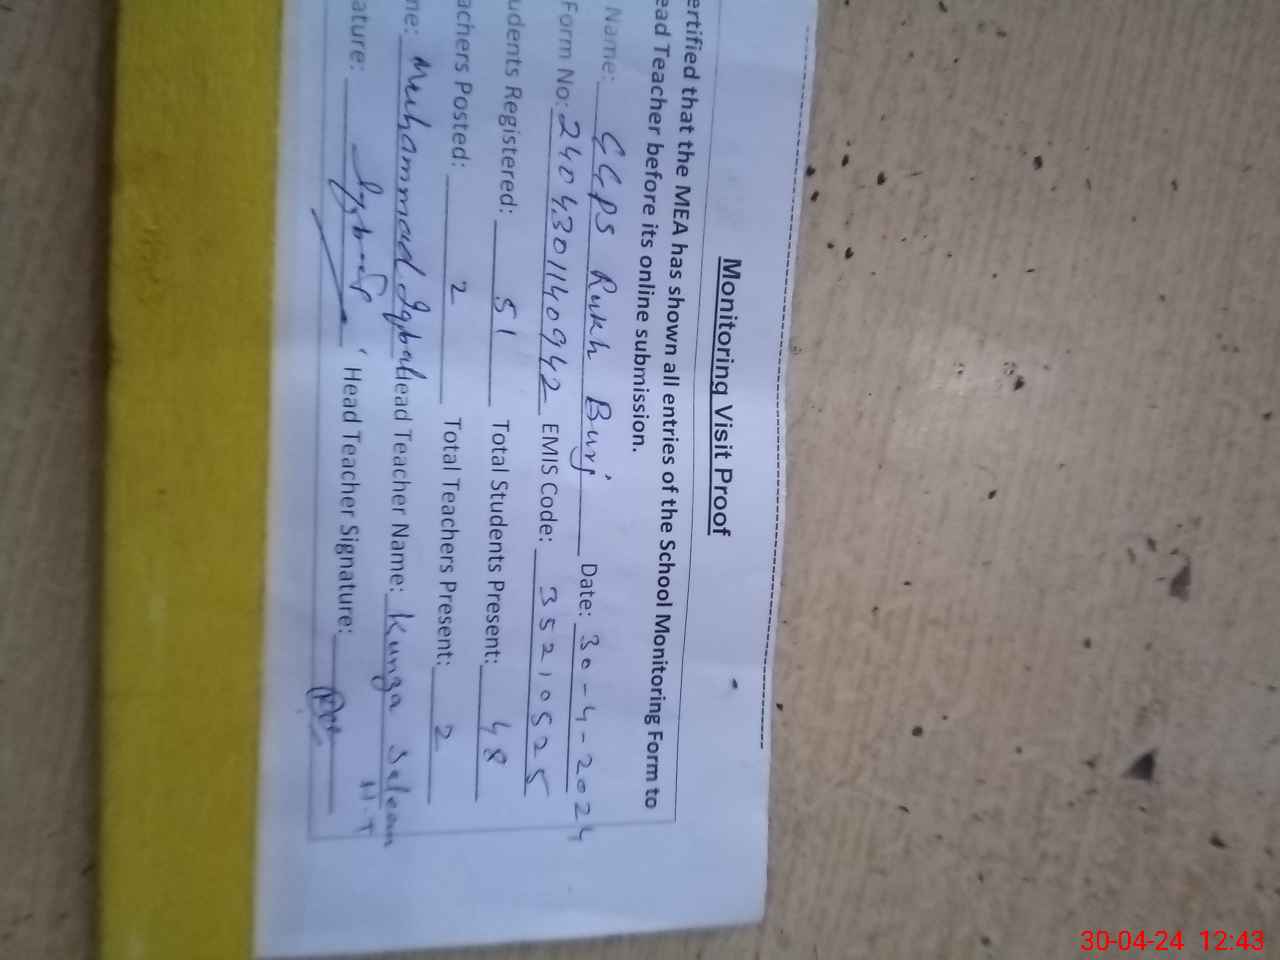 Monitoring Visit Proof
ertified that the MEA has shown all entries of the School Monitoring Form to
ead Teacher before its online submission.
Name: GGPS Rukh Burj Date: 30-4-2024
Form No: 2404301140942 EMIS Code: 35210525
udents Registered: 51 Total Students Present: 48
achers Posted: 2 Total Teachers Present: 2
me: Muhammad Iqbal ead Teacher Name: Kunza Saleem
H.T
ature: Head Teacher Signature:
30-04-24 12:43